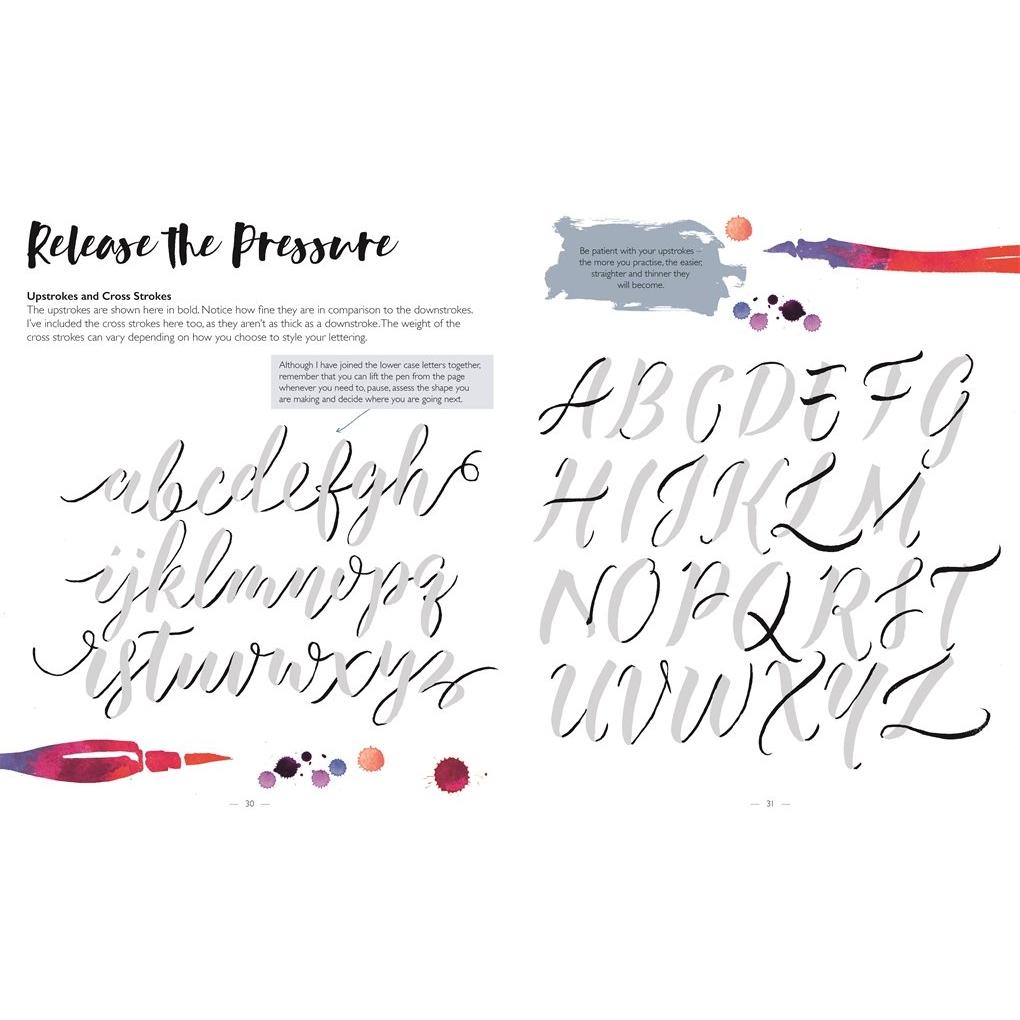 Release the Pressure
Upstrokes and Cross Strokes
The upstrokes are shown here in bold. Notice how fine they are in comparison to the downstrokes.
I've included the cross strokes here too, as they aren't as thick as a downstroke. The weight of the
cross strokes can vary depending on how you choose to style your lettering.
Although I have joined the lower case letters together,
remember that you can lift the pen from the page
whenever you need to, pause, assess the shape you
are making and decide where you are going next.
abcdefgh
ijklmnopq
rstuvwxyz
30
Be patient with your upstrokes –
the more you practise, the easier,
straighter and thinner they
will become.
ABCDEFG
HIJKLM
NOPQRST
UVWXYZ
31